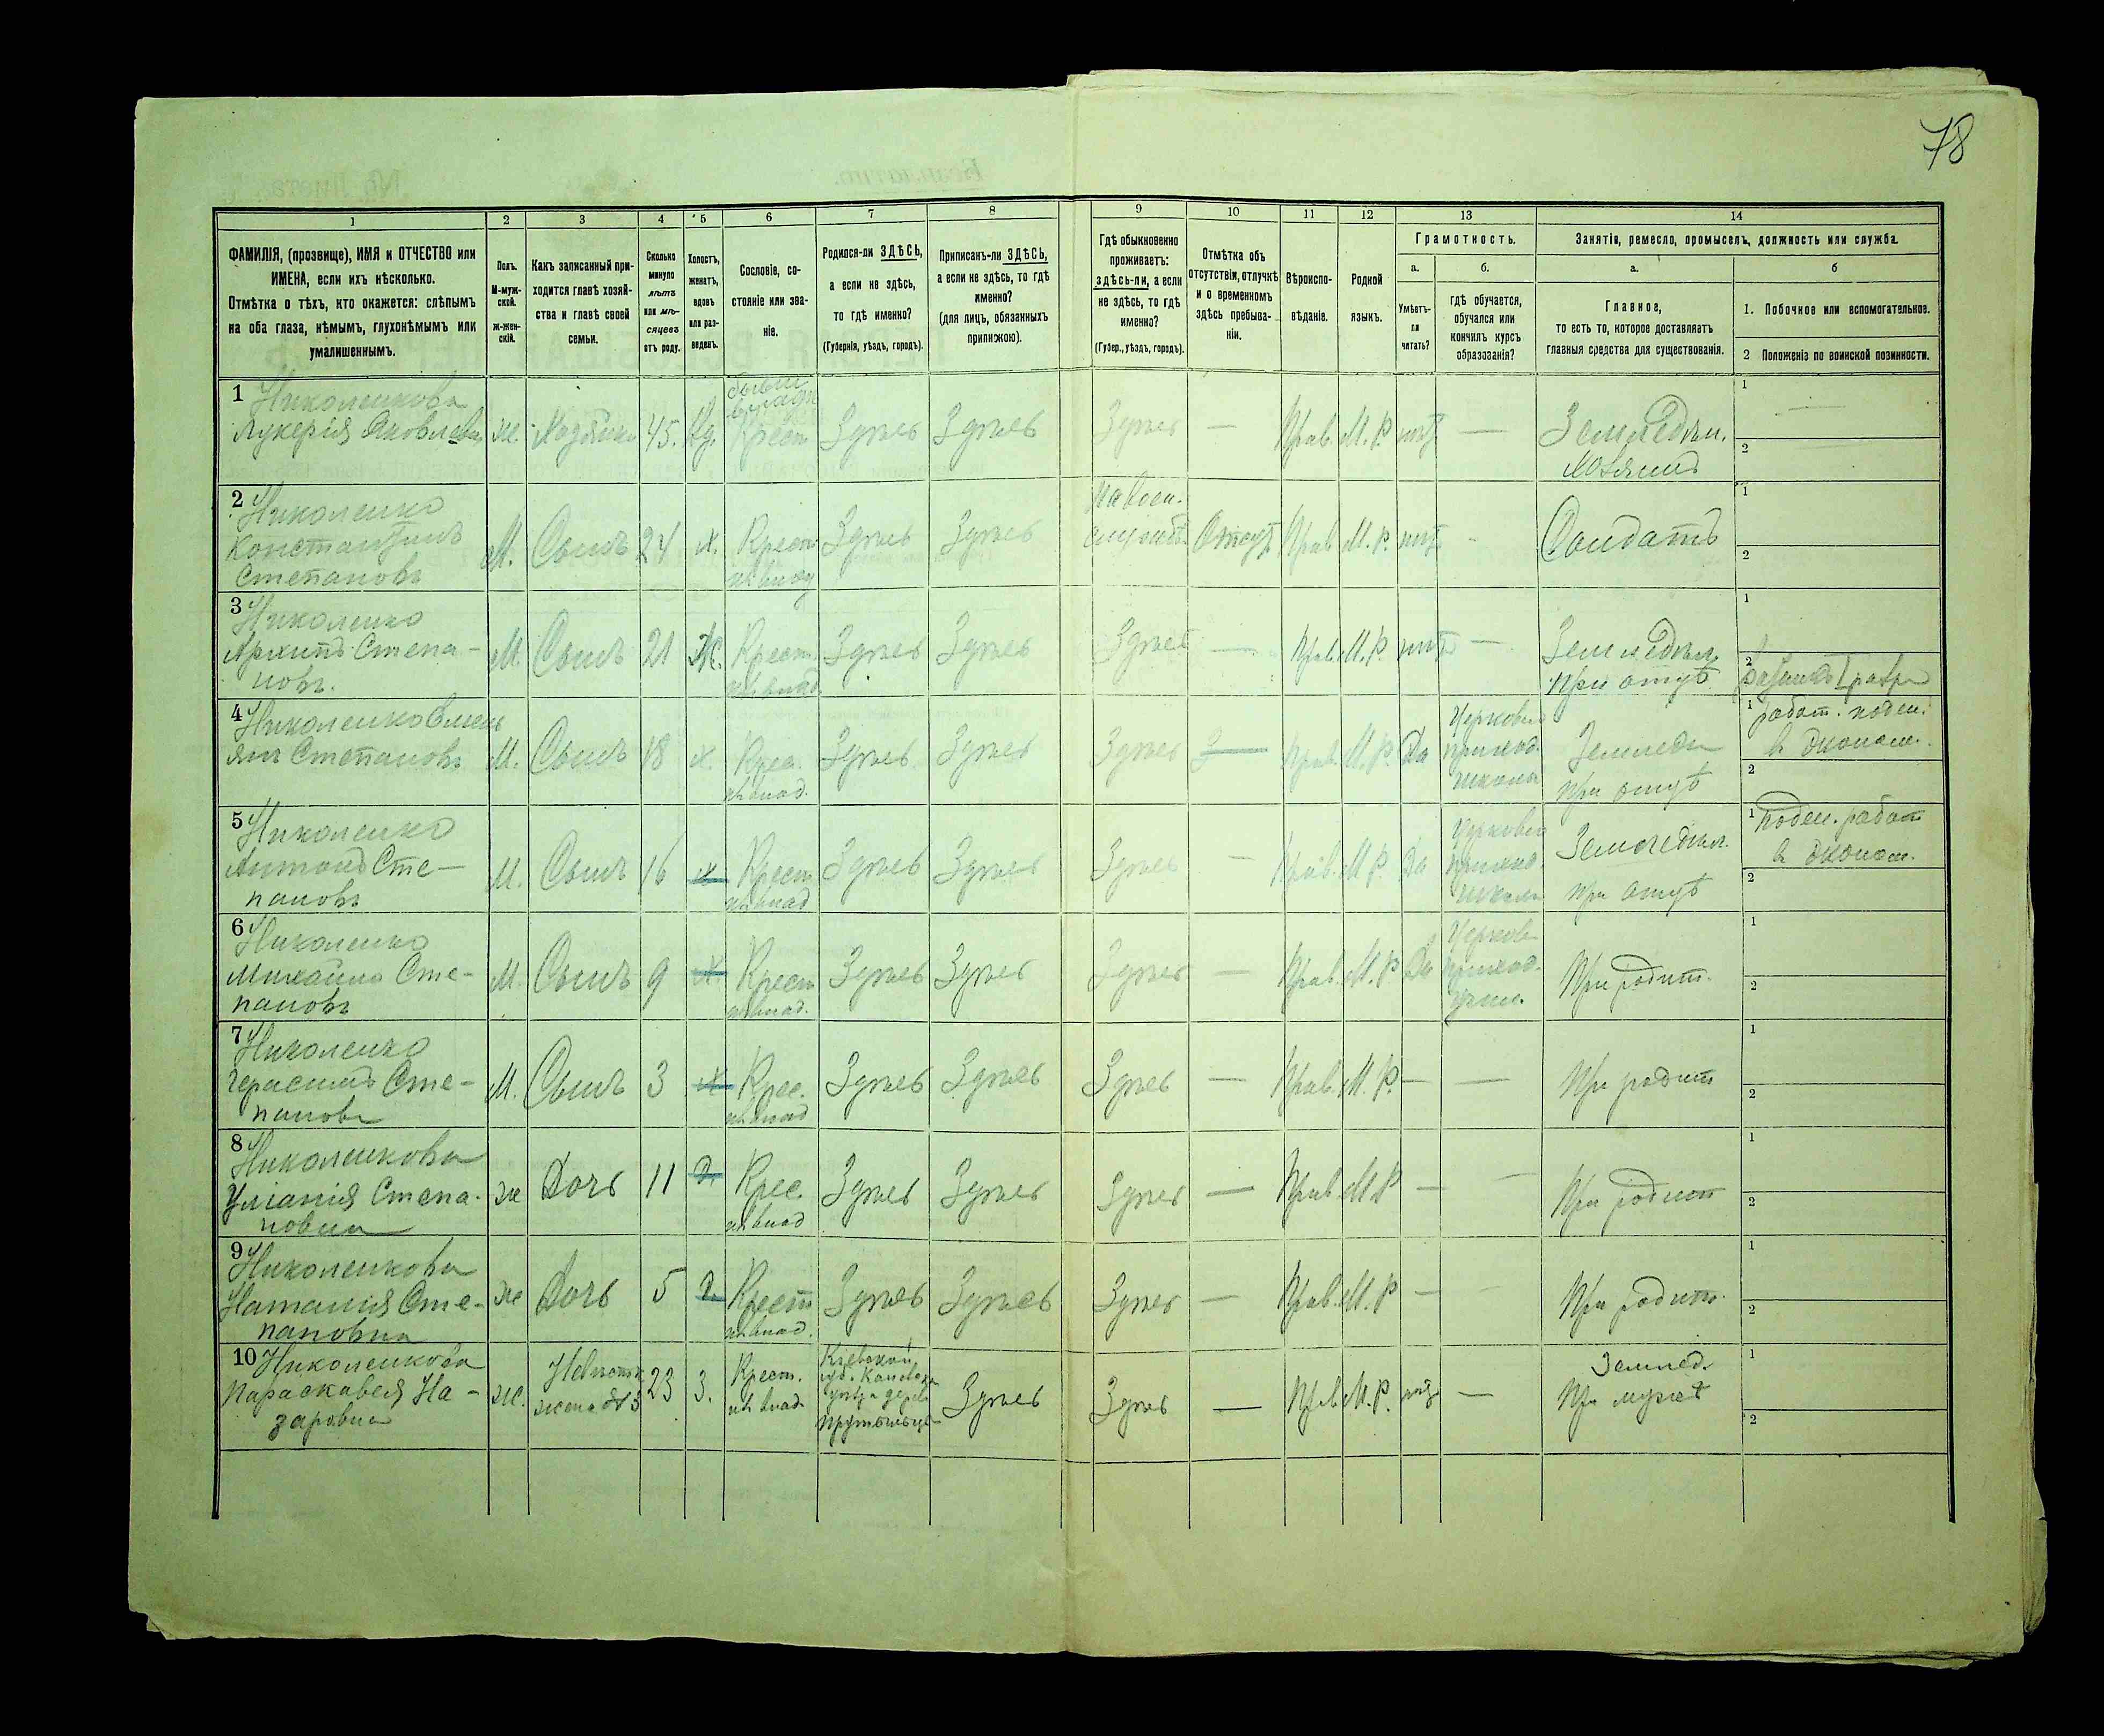 78
1
2
3
4
5
6
7
8
9
10
11
12
13
14
ФАМИЛІЯ, (прозвище), ИМЯ и ОТЧЕСТВО или
ИМЕНА, если ихъ нѣсколько.
Отмѣтка о тѣхъ, кто окажется: слѣпымъ
на оба глаза, нѣмымъ, глухонѣмымъ или
умалишеннымъ.
Полъ.
М-муж-
ской.
ж-жен-
скій.
Какъ записанный при-
ходится главѣ хозяй-
ства и главѣ своей
семьи.
Сколько
минуло
лѣтъ
или мѣ-
сяцевъ
отъ роду.
Холостъ,
женатъ,
вдовъ
или раз-
веденъ.
Сословіе, со-
стояніе или зва-
ніе.
Родился-ли ЗДѢСЬ,
а если не здѣсь,
то гдѣ именно?
(Губернія, уѣздъ, городъ).
Приписанъ-ли ЗДѢСЬ,
а если не здѣсь, то гдѣ
именно?
(для лицъ, обязанныхъ
припискою).
Гдѣ обыкновенно
проживаетъ:
здѣсь-ли, а если
не здѣсь, то гдѣ
именно?
(Губер., уѣздъ, городъ).
Отмѣтка объ
отсутствіи, отлучкѣ
и о временномъ
здѣсь пребыва-
ніи.
Вѣроиспо-
вѣданіе.
Родной
языкъ.
Грамотность.
а.
Умѣетъ-
ли
читать?
б.
гдѣ обучается,
обучался или
кончилъ курсъ
образованія?
Занятія, ремесло, промыселъ, должность или служба.
а.
Главное,
то есть то, которое доставляетъ
главныя средства для существованія.
б
1. Побочное или вспомогательное.
2 Положеніе по воинской повинности.
1 Николенкова
Лукерія Яковлевна ж. Хозяйка 45. Вд. Крест Здѣсь Здѣсь Здѣсь — Прав. М.Р. нѣт — Земледѣл.
1
2
2 Николенко
Константинъ
Степановъ М. Сынъ 24 х. Крест Здѣсь Здѣсь На воен. Отсут Прав. М.Р. нѣт - Солдатъ
1
2
3 Николенко
Архипъ Степа-
новъ. М. Сынъ 21 Ж. Крест. Здѣсь Здѣсь Здѣсь — Прав. М.Р. нѣт — Земледѣл.
при отцѣ
1
2
4 Николенко Емель
янъ Степановъ М. Сынъ 18 х. Крес. Здѣсь Здѣсь Здѣсь — Прав. М.Р. Да Церковно
приход.
школа
Земледѣл
при отцѣ
1 работ. поден.
в эконом.
2
5 Николенко
Антонъ Сте-
пановъ М. Сынъ 16 х Крест Здѣсь Здѣсь Здѣсь — Прав. М.Р. Да Церковно
приход.
школа
Земледѣл.
при отцѣ
1 Поден. работ
в эконом.
2
6 Николенко
Михайло Сте-
пановъ М. Сынъ 9 х. Крест Здѣсь Здѣсь Здѣсь — Прав. М.Р. Да Церковн
приход.
учил.
При родит.
1
2
7 Николенко
Герасимъ Сте-
пановъ М. Сынъ 3 х Крес. Здѣсь Здѣсь Здѣсь — Прав. М.Р. — — При родит
1
2
8 Николенкова
Уліанія Степа-
новна ж Дочь 11 Крес. Здѣсь Здѣсь Здѣсь — Прав. М.Р — — При родит
1
2
9 Николенкова
Наталія Сте-
пановна ж Дочь 5 Крест Здѣсь Здѣсь Здѣсь — Прав. М.Р — — При родит.
1
2
10 Николенкова
Параскавея На-
заровна ж. Невѣстка
жена №3 23 З. Крест. Кіевской
губ. Каневск.
Здѣсь Здѣсь — Прав. М.Р. нѣт — Землед.
При мужѣ
1
2